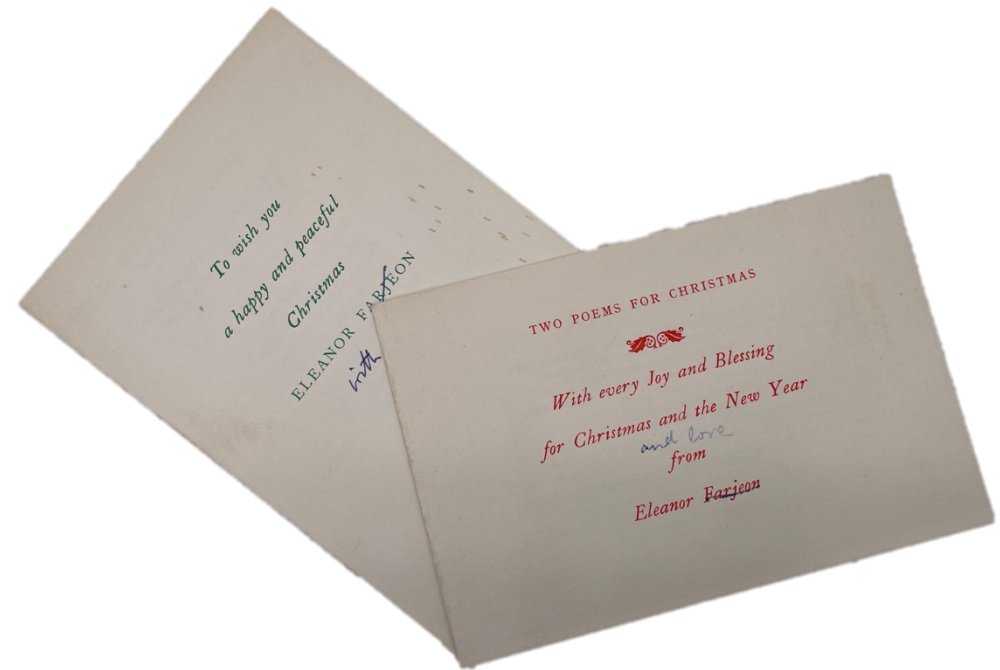 To wish you
a happy and peaceful
Christmas
ELEANOR FARJEON
with
TWO POEMS FOR CHRISTMAS
With every Joy and Blessing
for Christmas and the New Year
and love
from
Eleanor Farjeon